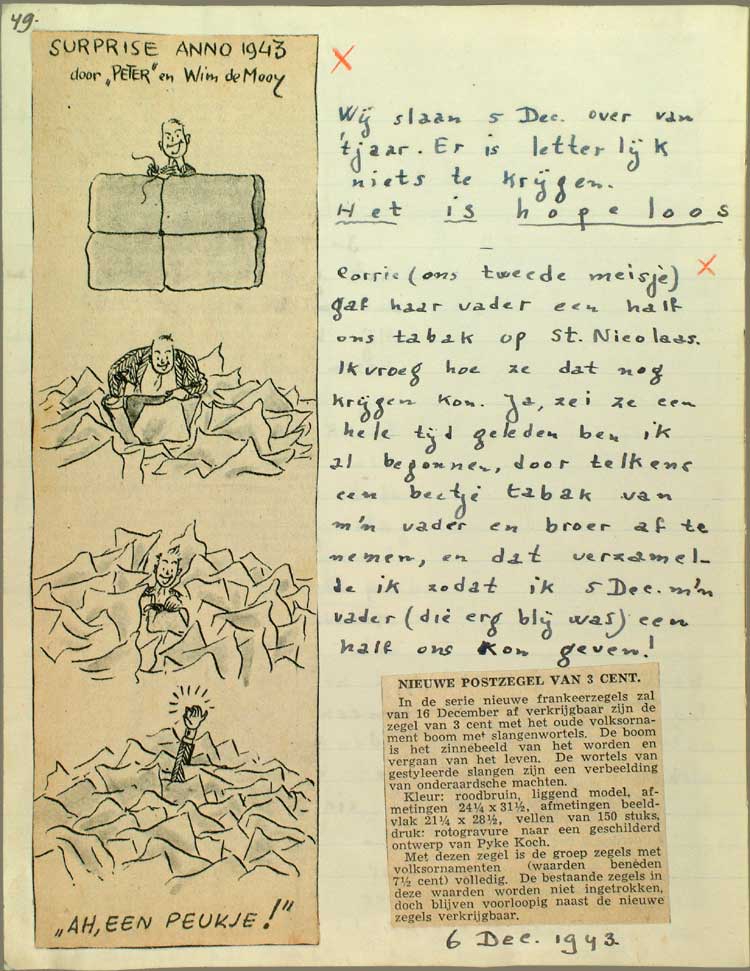 49.
SURPRISE ANNO 1943
door „PETER” en Wim de Mooy
„AH, EEN PEUKJE!”
Wij slaan 5 Dec. over van
't jaar. Er is letterlijk
niets te krijgen.
Het is hopeloos
Corrie (ons tweede meisje)
gaf haar vader een half
ons tabak op St. Nicolaas.
Ik vroeg hoe ze dat nog
krijgen kon. Ja, zei ze een
hele tijd geleden ben ik
al begonnen, door telkens
een beetje tabak van
m'n vader en broer af te
nemen, en dat verzamel-
de ik zodat ik 5 Dec. m'n
vader (die erg blij was) een
half ons kon geven!
NIEUWE POSTZEGEL VAN 3 CENT.
In de serie nieuwe frankeerzegels zal
van 16 December af verkrijgbaar zijn de
zegel van 3 cent met het oude volksorna-
ment boom met slangenwortels. De boom
is het zinnebeeld van het worden en
vergaan van het leven. De wortels van
gestyleerde slangen zijn een verbeelding
van onderaardsche machten.
Kleur: roodbruin, liggend model, af-
metingen 24¼ x 31½, afmetingen beeld-
vlak 21¼ x 28½, vellen van 150 stuks,
druk: rotogravure naar een geschilderd
ontwerp van Pyke Koch.
Met dezen zegel is de groep zegels met
volksornamenten (waarden beneden
7½ cent) volledig. De bestaande zegels in
deze waarden worden niet ingetrokken,
doch blijven voorloopig naast de nieuwe
zegels verkrijgbaar.
6 Dec. 1943